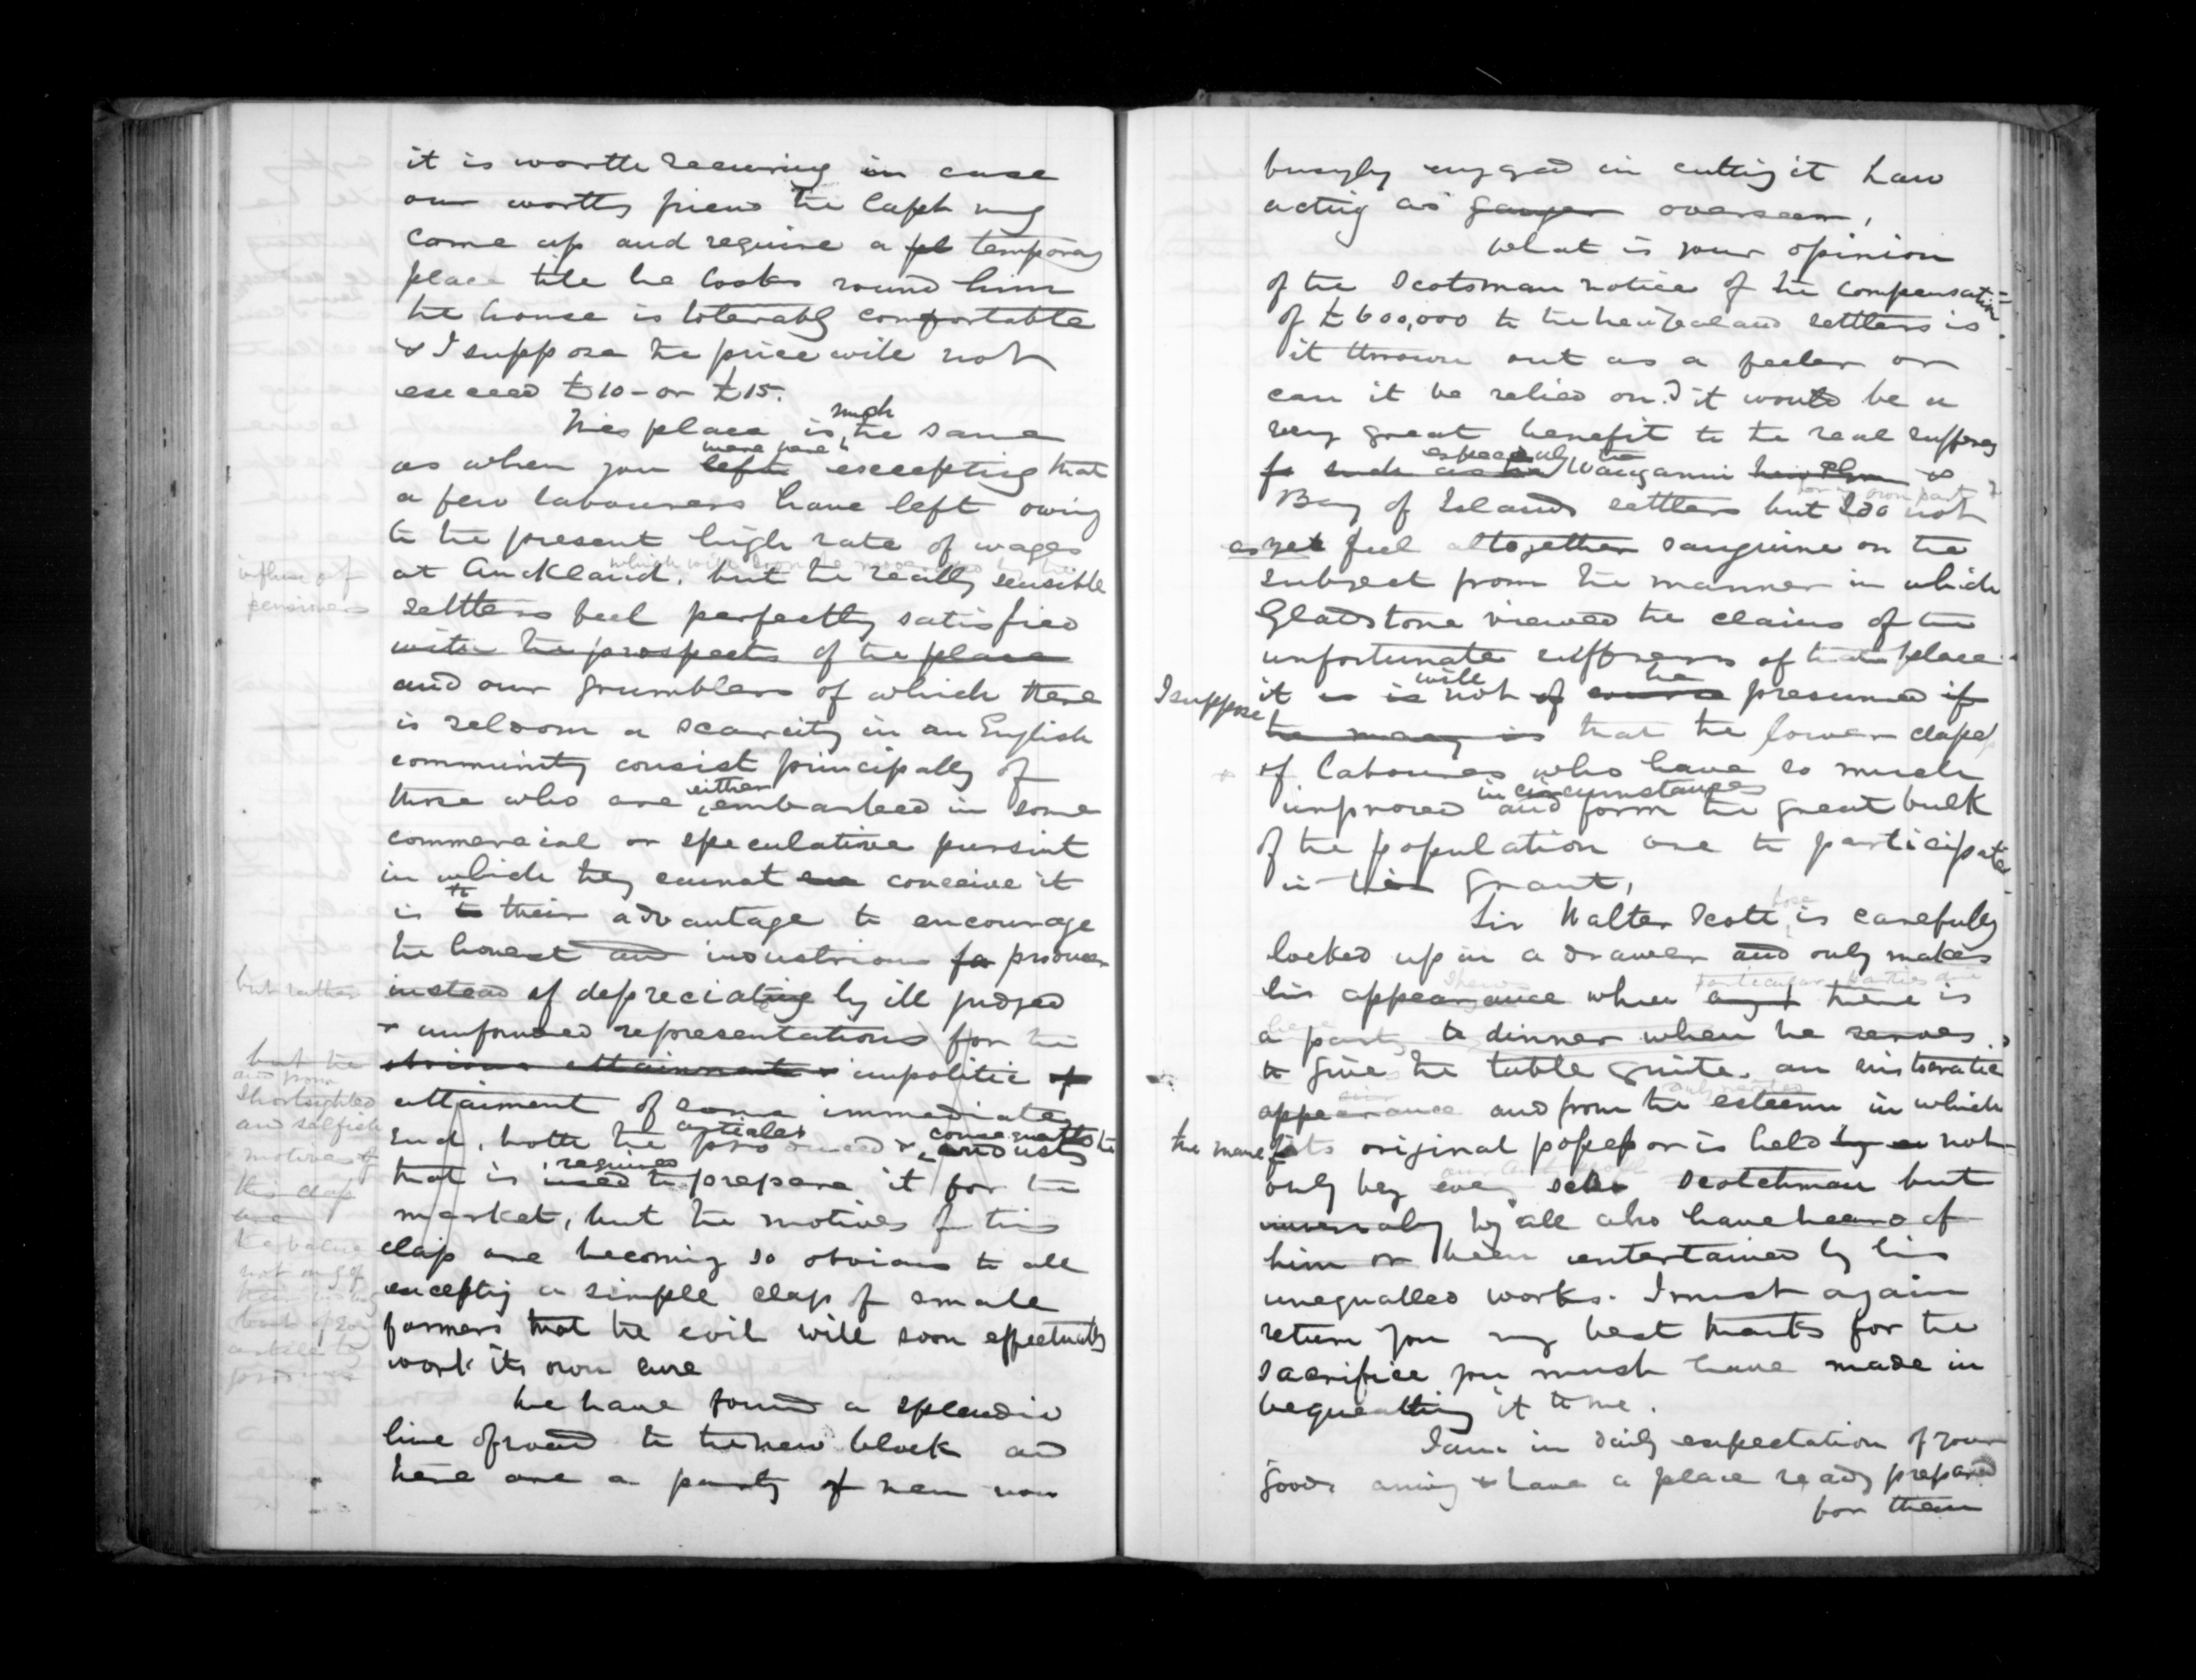 it is worth securing in case
our worthy friend the Capt may
come up and require a pl temporary
place till he looks round him
the house is tolerably comfortable
& I suppose the price will not
exceed £10 - or £15.
This place is much the same
as when you left were here excepting that
a few labourers have left owing
to the present high rate of wages
at Auckland. which will soon be moderated by the
influx of
pensioners
but the really sensible
settlers feel perfectly satisfied
with the prospects of the place
and our grumblers of which there
is seldom a scarcity in an English
community consist principally of
those who are either embarked in some
commercial or speculative pursuit
in which they cannot conceive it
is to their advantage to encourage
the honest and industrious fa producer
but rather
instead of depreciating by ill judged
& unfounded representations for the
obvious attainment & impolitic of
but the
and from
shortsighted
and selfish
motives of
this class
the value
not only of
attainment of some immediate
end, both the articles produced & consequently the
that is required used to prepare it for the
market, but the motives of this
class are becoming so obvious to all
excepting a simple class of small
farmers that the evil will soon effectually
work its own cure
We have found a splendid
line of road to the new block and
there are a party of men now
busyly engaged in cutting it Law
acting as ganger overseer,
What is your opinion
of the Scotsman notice of the compensation
of £600,000 to the New Zealand settlers is
it thrown out as a feeler or
can it be relied on? it would be a
very great benefit to the real sufferers
fr such as the especially the Wanganui New Plym &
Bay of Islands settlers but for my own part I do not
as yet feel altogether sanguine on the
subject from the manner in which
Gladstone viewed the claims of the
unfortunate sufferers of that place
I suppose it is is will not of course be presumed if
the many is that the lower class
of labourers who have so much
improved in circumstances and form the great bulk
of the population are to participate
in this grant,
Sir Walter Scott is carefully
locked up in a drawer and only makes
his appearance when any particular parties are there is
a party to dinner when he serves
to give the table quite an aristocratic
appearance and from the esteem in which
the name of its original possessor is held by ev not
only by every Scotchman but
universally by all who have heard of
him or been entertained by his
unequalled works. I must again
return you my best thanks for the
sacrifice you must have made in
bequeathing it to me.
I am in daily expectation of your
goods arriving & have a place ready prepared
for them